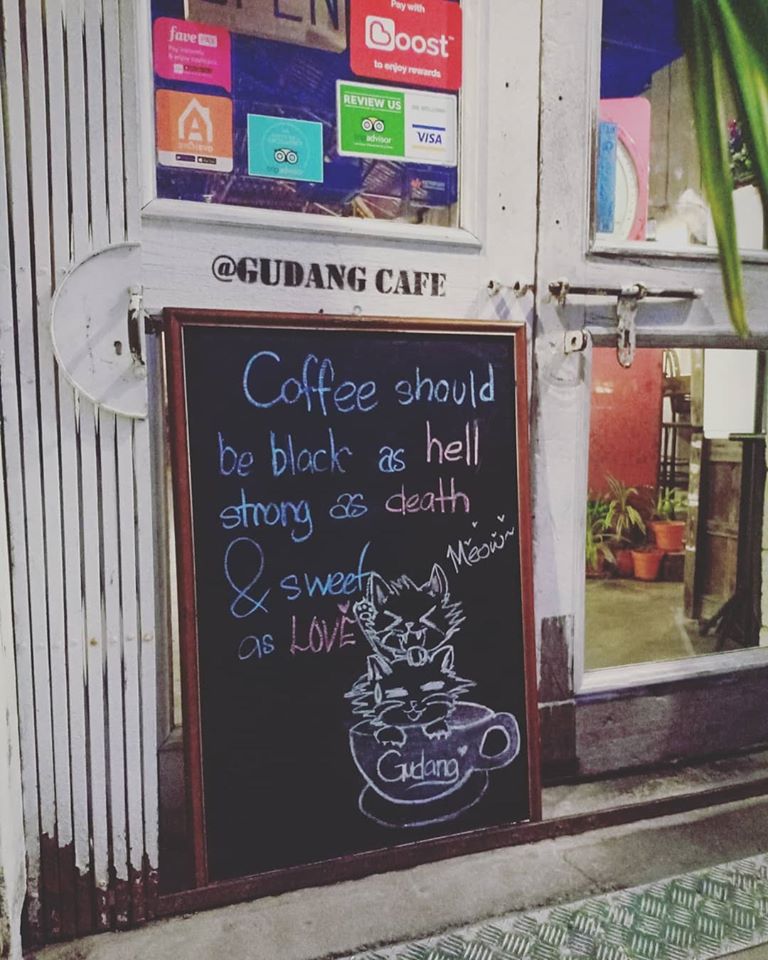 OPEN
fave
Pay with
Boost™
to enjoy rewards
REVIEW US
tripadvisor
VISA
tripadvisor
@GUDANG CAFE
Coffee should
be black as hell
strong as death
& sweet
as LOVE
Meow~
Gudang